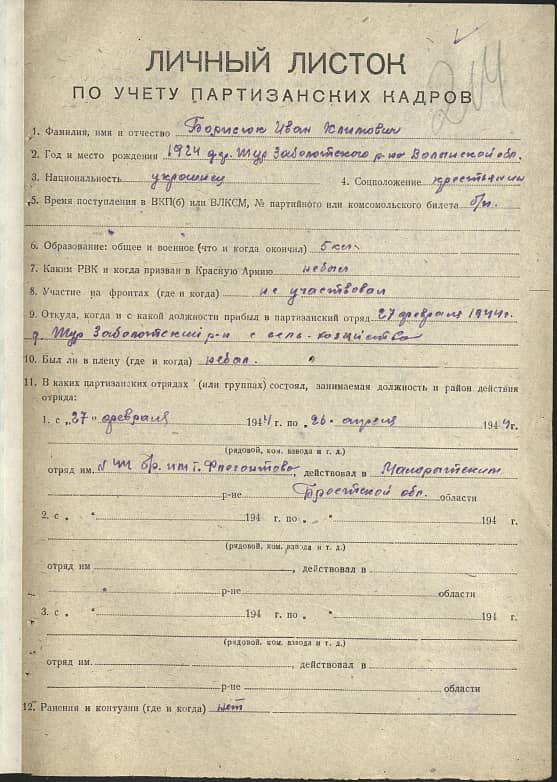 214
ЛИЧНЫЙ ЛИСТОК
ПО УЧЕТУ ПАРТИЗАНСКИХ КАДРОВ
1. Фамилия, имя и отчество Борисюк Иван Климович
2. Год и место рождения 1924 д. Жур Заболотского р-на Волынской обл.
3. Национальность украинец 4. Соцположение крестьянин
5. Время поступления в ВКП(б) или ВЛКСМ, № партийного или комсомольского билета б/п.
6. Образование: общее и военное (что и когда окончил) 5 кл.
7. Каким РВК и когда призван в Красную Армию небыл
8. Участие на фронтах (где и когда) не участвовал
9. Откуда, когда и с какой должности прибыл в партизанский отряд 27 февраля 1944г.
д. Жур Заболотский р-н с сель-хозяйства
10. Был ли в плену (где и когда) небыл.
11. В каких партизанских отрядах (или группах) состоял, занимаемая должность и район действия
отряда:
1. с „27" февраля 1944 г. по „26" апреля 1944 г.
(рядовой, ком. взвода и т. д.)
отряд им. бр. им т. действовал в Малоритским
р-не Брестской обл. области
2. с „ " 194 г. по „ " 194 г.
(рядовой, ком. взвода и т. д.)
отряд им , действовал в
р-не области
3. с „ " 194 г. по „ " 194 г.
(рядовой, ком. взвода и т. д.)
отряд им. , действовал в
р-не области
12. Ранения и контузии (где и когда) нет